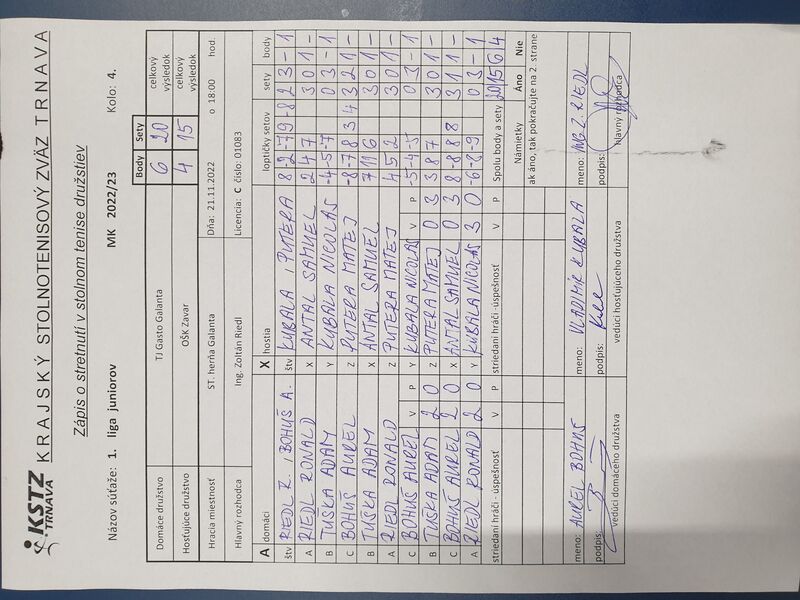 KSTZ
TRNAVA
KRAJSKÝ STOLNOTENISOVÝ ZVÄZ TRNAVA
Zápis o stretnutí v stolnom tenise družstiev
Názov súťaže: 1. liga juniorov MK 2022/23 Kolo: 4.
Body Sety
Domáce družstvo TJ Gasto Galanta 6 20 celkový výsledok
Hosťujúce družstvo OŠK Zavar 4 15 celkový výsledok
Hracia miestnosť ST. herňa Galanta Dňa: 21.11.2022 o 18:00 hod.
Hlavný rozhodca Ing. Zoltán Riedl Licencia: C číslo: 01083
A domáci X hostia loptičky setov sety body
štv RIEDL R. , BOHUŠ A. štv KUBALA , PUTERA 8 -2 -7 9 -8 2 3 - 1
A RIEDL RONALD X ANTAL SAMUEL 2 4 7 3 0 1 -
B TUŠKA ADAM Y KUBALA NICOLAS -4 -5 -7 0 3 - 1
C BOHUŠ AUREL Z PUTERA MATEJ -8 -7 8 3 4 3 2 1 -
B TUŠKA ADAM X ANTAL SAMUEL 7 11 6 3 0 1 -
A RIEDL RONALD Z PUTERA MATEJ 4 5 2 3 0 1 -
C BOHUŠ AUREL V P Y KUBALA NICOLAS V P -5 -4 -5 0 3 - 1
B TUŠKA ADAM 2 0 Z PUTERA MATEJ 0 3 3 8 7 3 0 1 -
C BOHUŠ AUREL 2 0 X ANTAL SAMUEL 0 3 8 -8 8 8 3 1 1 -
A RIEDL RONALD 2 0 Y KUBALA NICOLAS 3 0 -6 -8 -9 0 3 - 1
striedaní hráči - úspešnosť V P striedaní hráči - úspešnosť V P Spolu body a sety 20 15 6 4
Námietky Áno Nie
ak áno, tak pokračujte na 2. strane
meno: AUREL BOHUŠ meno: VLADIMÍR KUBALA meno: ING. Z. RIEDL
podpis: podpis: podpis:
vedúci domáceho družstva vedúci hosťujúceho družstva hlavný rozhodca